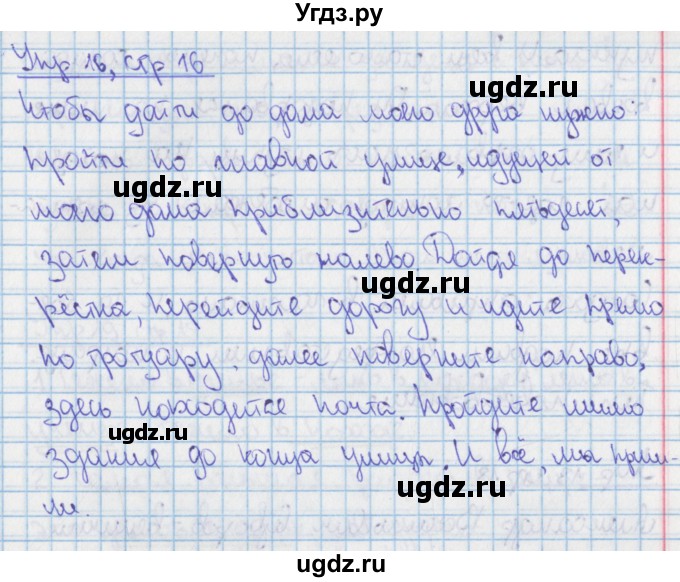 Угдз.ру
Упр 16, стр 16
ugdz.ru
Чтобы дайти до дома моего друга нужно:
пройти по главной улице, идущей от
ugdz.ru
моего дома приблизительно пятьдесят,
затем повернуть налево. Дойдя до перек-
ugdz.ru
рёстка, перейдите дорогу и идите прямо
по тротуару. далее поверните направо,
ugdz.ru
здесь находится почта. Пройдите мимо
ugdz.ru
здания до конца улицы. И всё, мы приш-
ugdz.ru
ли.
ugdz.ru